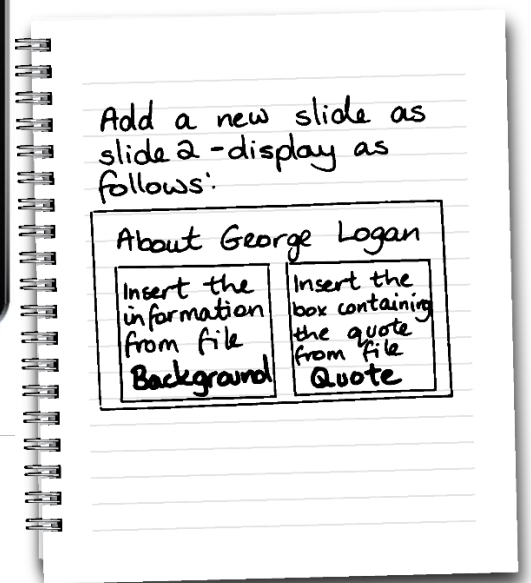 Add a new slide as
slide 2 - display as
follows:
About George Logan
Insert the
information
from file
Background
Insert the
box containing
the quote
from file
Quote